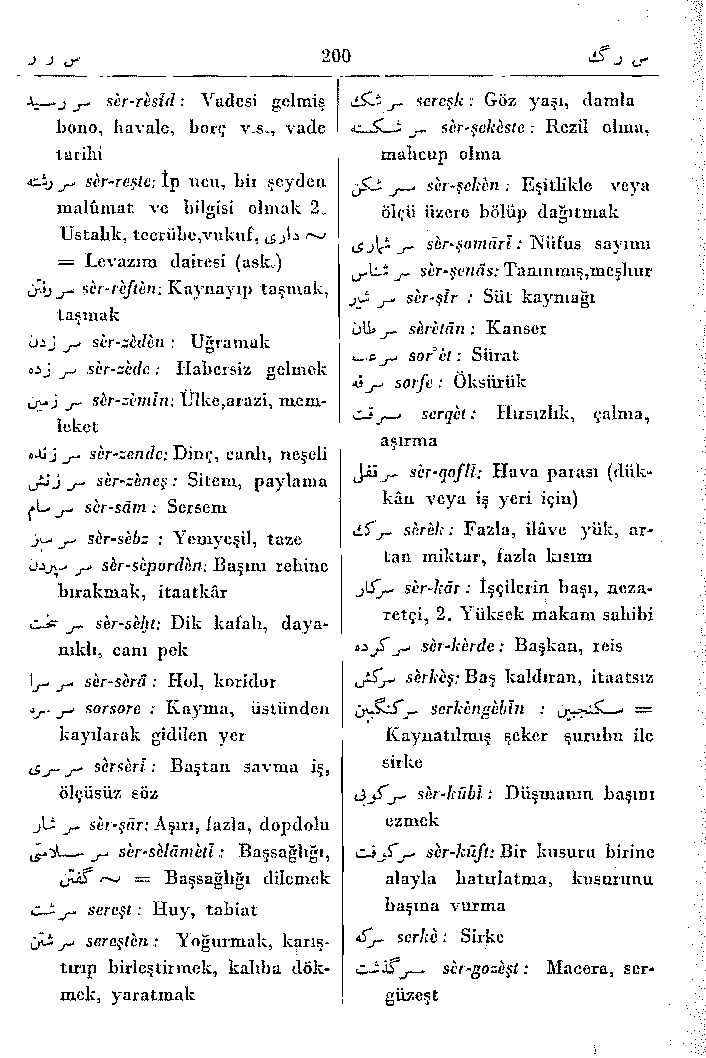 س ر ر
200
س ر گ
سر رسید sèr-rèsîd : Vadesi gelmiş
bono, havale, borç v.s., vade
tarihi
سر رشته sèr-reşte: İp ucu, bir şeyden
malûmat ve bilgisi olmak 2.
Ustalık, tecrübe,vukuf, داری ~
= Levazım dairesi (ask.)
سر رفتن sèr-rèftèn: Kaynayıp taşmak,
taşmak
سر زدن sèr-zèdèn : Uğramak
سر زده sèr-zède: Habersiz gelmek
سر زمین sèr-zèmîn: Ülke,arazi, mem-
leket
سر زنده sèr-zende: Dinç, canlı, neşeli
سر زنش sèr-zèneş: Sitem, paylama
سر سام sèr-sâm : Sersem
سر سبز sèr-sèbz : Yemyeşil, taze
سر سپردن sèr-sèpordèn: Başını rehine
bırakmak, itaatkâr
سر سخت sèr-sèḫt: Dik kafalı, daya-
nıklı, canı pek
سر سرا sèr-sèrâ : Hol, koridor
سر سره sorsore : Kayma, üstünden
kayılarak gidilen yer
سر سری sèrsèrî : Baştan savma iş,
ölçüsüz söz
سر شار sèr-şâr: Aşırı, fazla, dopdolu
سر سلامتی sèr-sèlâmètî : Başsağlığı,
گفتن ~ = Başsağlığı dilemek
سرشت sereşt : Huy, tabiat
سرشتن sereştèn : Yoğurmak, karış-
tırıp birleştirmek, kalıba dök-
mek, yaratmak
سرشک sereşk : Göz yaşı, damla
سر شکسته sèr-şekèste : Rezil olma,
mahcup olma
سر شکن sèr-şekèn : Eşitlikle veya
ölçü üzere bölüp dağıtmak
سر شماری sèr-şomârî : Nüfus sayımı
سر شناس sèr-şenâs: Tanınmış,meşhur
سر شیر sèr-şîr : Süt kaymağı
سرطان sèrètân : Kanser
سرعت sor'èt : Sürat
سرفه sorfe : Öksürük
سرقت serqèt : Hırsızlık, çalma,
aşırma
سرقفلی sèr-qoflî: Hava parası (dük-
kân veya iş yeri için)
سرک sèrèk : Fazla, ilâve yük, ar-
tan miktar, fazla kısım
سرکار sèr-kâr : İşçilerin başı, neza-
retçi, 2. Yüksek makam sahibi
سرکرده sèr-kèrde : Başkan, reis
سرکش sèrkèş: Baş kaldıran, itaatsız
سرکنگبین serkèngèbîn : سکنجبین =
Kaynatılmış şeker şurubu ile
sirke
سرکوبی sèr-kûbî : Düşmanın başını
ezmek
سرکوفت sèr-kûft: Bir kusuru birine
alayla hatırlatma, kusurunu
başına vurma
سرکه serkè : Sirke
سرگذشت sèr-gozèşt : Macera, ser-
güzeşt